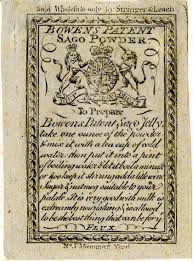 Sold Wholesale only by Stringer & Leach
BOWENS PATENT
SAGO POWDER
To Prepare
Bowens Patent Sago Jelly,
take one ounce of the powder
& mix it with a tea cup of cold
water then put it into a pint
of boiling water & let it boil a minute
or too keep it stirring add a little wine
Sugar & nutmeg suitable to your
palate. It is very good with milk is
extremly nourishing & is allowed
to be the best thing that can be for y
FLUX